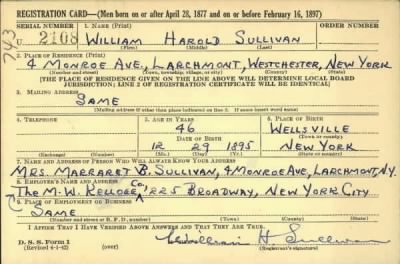 REGISTRATION CARD—(Men born on or after April 28, 1877 and on or before February 16, 1897)
SERIAL NUMBER 1. NAME (Print) ORDER NUMBER
U 2108 WILLIAM HAROLD SULLIVAN
(First) (Middle) (Last)
743
2. PLACE OF RESIDENCE (Print)
4 MONROE AVE., LARCHMONT, WESTCHESTER, NEW YORK
(Number and street) (Town, township, village, or city) (County) (State)
[THE PLACE OF RESIDENCE GIVEN ON THE LINE ABOVE WILL DETERMINE LOCAL BOARD
JURISDICTION; LINE 2 OF REGISTRATION CERTIFICATE WILL BE IDENTICAL]
3. MAILING ADDRESS
SAME
[Mailing address if other than place indicated on line 2. If same insert word same]
4. TELEPHONE 5. AGE IN YEARS 6. PLACE OF BIRTH
46 WELLSVILLE
DATE OF BIRTH (Town or county)
12 29 1895 NEW YORK
(Exchange) (Number) (Mo.) (Day) (Yr.) (State or country)
7. NAME AND ADDRESS OF PERSON WHO WILL ALWAYS KNOW YOUR ADDRESS
MRS. MARGARET B. SULLIVAN, 4 MONROE AVE, LARCHMONT, N.Y.
8. EMPLOYER'S NAME AND ADDRESS
THE M.W. KELLOGG CO., 225 BROADWAY, NEW YORK CITY
9. PLACE OF EMPLOYMENT OR BUSINESS
SAME
(Number and street or R. F. D. number) (Town) (County) (State)
I AFFIRM THAT I HAVE VERIFIED ABOVE ANSWERS AND THAT THEY ARE TRUE.
D. S. S. Form 1
(Revised 4-1-42) William H Sullivan
(Registrant's signature)